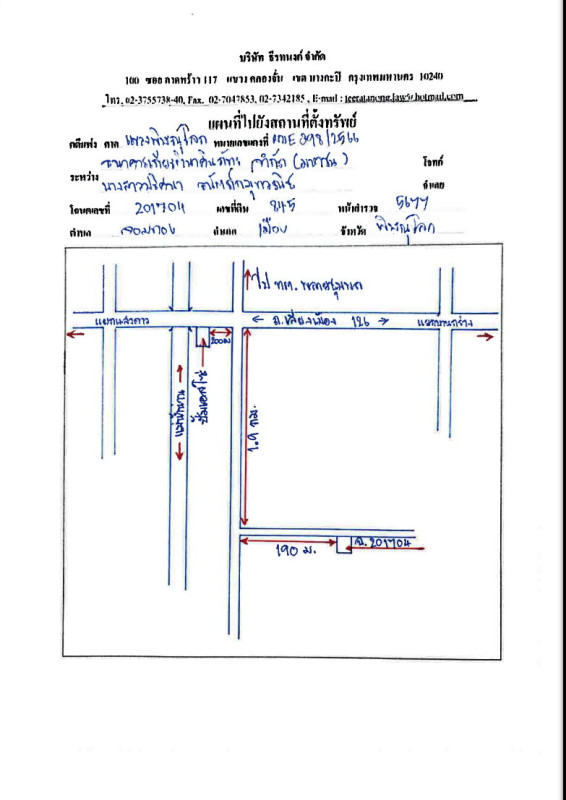 บริษัท ธีรทนงค์ จำกัด
100 ซอย ลาดพร้าว 117 แขวง คลองจั่น เขต บางกะปิ กรุงเทพมหานคร 10240
โทร. 02-3755738-40, Fax. 02-7047853, 02-7342185 , E-mail : teeratanong.law@hotmail.com
แผนที่ไปยังสถานที่ตั้งทรัพย์
คดีแพ่ง ศาล แขวงพิษณุโลก หมายเลขแดงที่ ผบE398/2566
ธนาคารเกียรตินาคินภัทร จำกัด (มหาชน) โจทก์
ระหว่าง
นางสาว จำเลย
โฉนดเลขที่ 201704 เลขที่ดิน 845 หน้าสำรวจ 5677
ตำบล จอมทอง อำเภอ เมือง จังหวัด พิษณุโลก
ไป
แยกแสงดาว
← ถ.เลี่ยงเมือง 126 →
แยกบานกร่าง
200 ม
แม่น้ำน่าน
1.9 กม.
190 ม.
ฉ. 201704